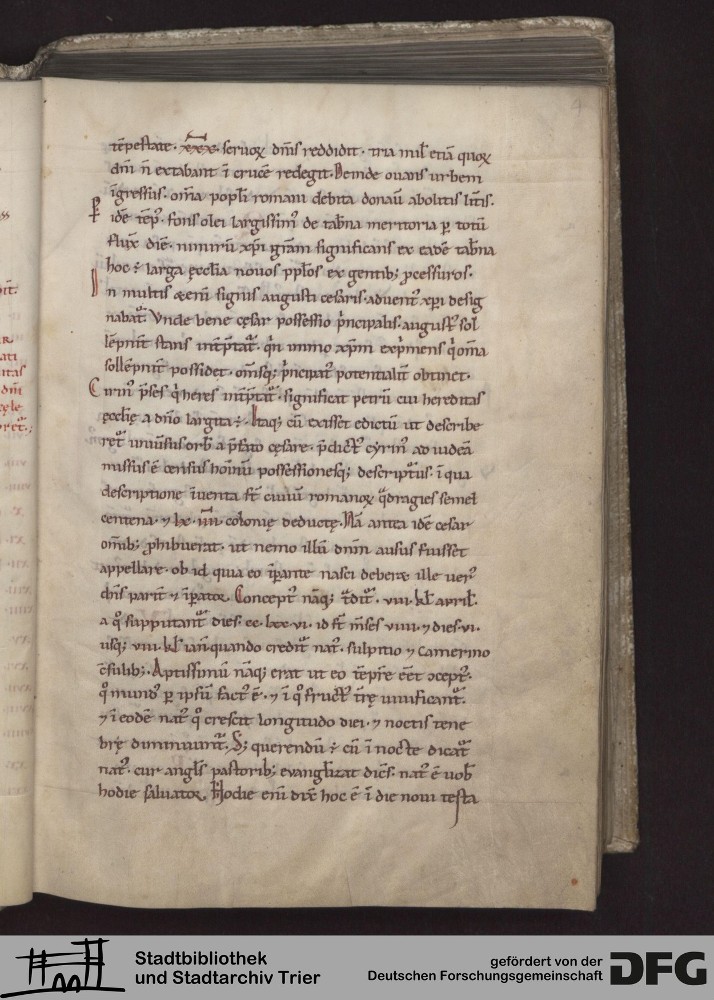 tēpestate. xxx. seruoꝝ dn̄is reddidit. tria mil̄ etiā quoꝝ
dn̄i n̄ extabant ī crucē redegit. Deinde ouans urbem
īgressus. om̄a popl̄i romani debita donauī abolitis l̄itis.
P̄ idē tēp̄. fons olei largissim᷒ de tab̄na meritoria ꝑ totū
flux̄ diē. nimirū xp̄i gr̄am significans ex eadē tab̄na
hoc ē larga ęccl̄ia nouos ppl̄os ex gentib; ꝓcessuros.
In multis aetenī signis augusti cesaris. aduent᷒ xp̄i desig
nabat᷒. Vnde bene cęsar possessio p̄ncipalis. august᷒ sol
lēpnit̄ stans int̄p̄tat᷒. qn̄ immo xp̄m exp̄mens q̇ om̄a
sollēpnit̄ possidet. om̄isq; p̄ncipat᷒ potentialit̄ obtinet.
Cirin᷒ p̄ses q̇ heres int̄p̄tat᷒. significat petrū cui hereditas
ęccl̄ię a dn̄o largita ē. Itaq; cū exisset edictū ut describe
ret᷒ uniūsus orb̄ a p̄fato cęsare. p̄dict᷒ cyrin᷒ ad iudeā
missus ē census hoīnū possessionesq; descript᷒us. ī qua
descriptione īuenta st̄ ciuiū romanoꝝ q̄dragies semel
centena. ⁊ lx. iiii. colonię deductę. Nā antea idē cesar
om̄ib; ꝓhibuerat. ut nemo illū dn̄m ausus fuisset
appellare. ob id quia eo īp̄ante nasci deberet ille uer᷒
dn̄s parit̄ ⁊ īp̄ator. Concept᷒ nāq; t̄dit᷒. viii. kl̄ april̄.
a q̊ supputant᷒ dies. cc. lxx. vi. id st̄ m̄ses viiii. ⁊ dies. vi.
usq; viii. kl̄ ian̄. quando credit᷒ nat᷒. sulpitio ⁊ camerino
c̄sulib;. Aptissimū nāq; erat ut eo tēpr̄e eēt ꝯcept᷒.
q̊ mund᷒ ꝑ ipsū fact᷒ ē. ⁊ ī q̊ fruct᷒ t̄rę uiuificant᷒.
⁊ ī eodē nat᷒ q̊ crescit longitudo diei. ⁊ noctis tene
brę diminuunt᷒. S; querendū ē cū ī nocte dicat᷒
nat᷒. cur angl̄s pastorib; euangl̄izat dic̄s. nat᷒ ē uob̄
hodie saluator. Hodie enī dix̄e hoc ē ī die noui testa
4
Stadtbibliothek
und Stadtarchiv Trier
gefördert von der
Deutschen Forschungsgemeinschaft
DFG